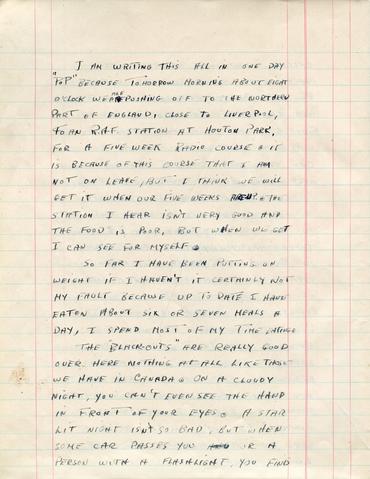 I AM WRITING THIS ALL IN ONE DAY
"POP" BECAUSE TOMORROW MORNING ABOUT EIGHT
O'CLOCK WE ARE PUSHING OFF TO THE NORTHERN
PART OF ENGLAND, CLOSE TO LIVERPOOL,
TO AN R.A.F. STATION AT HOUTON PARK,
FOR A FIVE WEEK RADIO COURSE & IT
IS BECAUSE OF THIS COURSE THAT I AM
NOT ON LEAVE, BUT I THINK WE WILL
GET IT WHEN OUR FIVE WEEKS THE
STATION I HEAR ISN'T VERY GOOD AND
THE FOOD IS POOR, BUT WHEN WE GET
I CAN SEE FOR MYSELF.
SO FAR I HAVE BEEN PUTTING ON
WEIGHT IF I HAVEN'T IT CERTAINLY NOT
MY FAULT BECAUSE UP TO DATE I HAVE
EATEN ABOUT SIX OR SEVEN MEALS A
DAY, I SPEND MOST OF MY TIME EATING
THE "BLACK-OUTS" ARE REALLY GOOD
OVER HERE NOTHING AT ALL LIKE THOSE
WE HAVE IN CANADA. ON A CLOUDY
NIGHT, YOU CAN'T EVEN SEE THE HAND
IN FRONT OF YOUR EYES. A STAR
LIT NIGHT ISN'T SO BAD, BUT WHEN
SOME CAR PASSES YOU OR A
PERSON WITH A FLASHLIGHT, YOU FIND